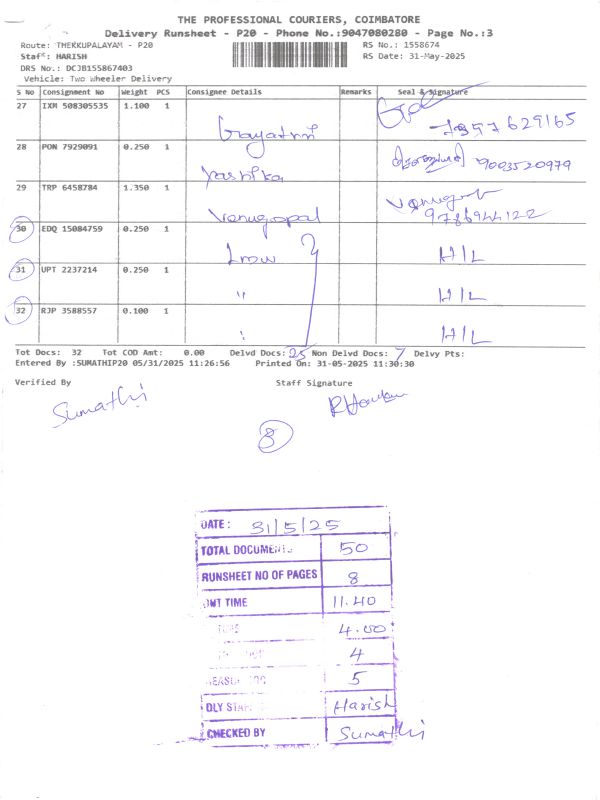 THE PROFESSIONAL COURIERS, COIMBATORE
Delivery Runsheet - P20 - Phone No.:9047080280 - Page No.:3
Route: THEKKUPALAYAM - P20 RS No.: 1558674
Staff: HARISH RS Date: 31-May-2025
DRS No.: DCJB155867403
Vehicle: Two Wheeler Delivery
S No Consignment No Weight PCS Consignee Details Remarks Seal & Signature
27 IXM 508305535 1.100 1 Gayathri 629165
28 PON 7929091 0.250 1 Yashika 9003520979
29 TRP 6458784 1.350 1 Venugopal Venugopal 9786944122
30 EDQ 15084759 0.250 1 H/L
31 UPT 2237214 0.250 1 " H/L
32 RJP 3588557 0.100 1 H/L
Tot Docs: 32 Tot COD Amt: 0.00 Delvd Docs: 25 Non Delvd Docs: 7 Delvy Pts:
Entered By :SUMATHIP20 05/31/2025 11:26:56 Printed On: 31-05-2025 11:30:30
Verified By Staff Signature
Sumathi
8
DATE: 31/5/25
TOTAL DOCUMENTS 50
RUNSHEET NO OF PAGES 8
OUT TIME 11.40
TIME 4.00
4
5
DLY STAFF Harish
CHECKED BY Sumathi